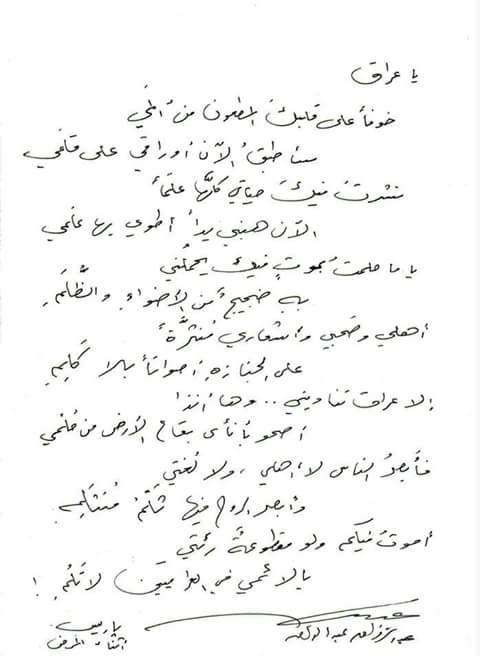 يا عراق
خوفاً على قلبك المطعون من ألمي
سأطبقُ الآن أوراقي على قلمي
نشرتُ فيكَ حياتي كلَّها علماً
الآن هبني يداً أطوي بها عَلمي
يا ما حلمتُ بموتٍ فيك يحملُني
بهِ ضجيجٌ من الأضواءِ والظُّلَمِ
أهلي وصَحبي وأشعاري مُنثَّرةً
على الجنازةِ أصواتاً بلا كَلِمِ
إلا عراق تناديني .. وها أنذا
أصحو بأنأى بقاع الأرض من حُلمي
فأبصرُ الناس لا أهلي، ولا لُغتي
وأبصر الروح فيها ثَلْمُ مُنثلمِ
أموتُ فيكم ولو مقطوعةً رئتي
يا لائمي في العراقيين لا تلُمِ !
عبد الرزاق عبد الواحد
باريس